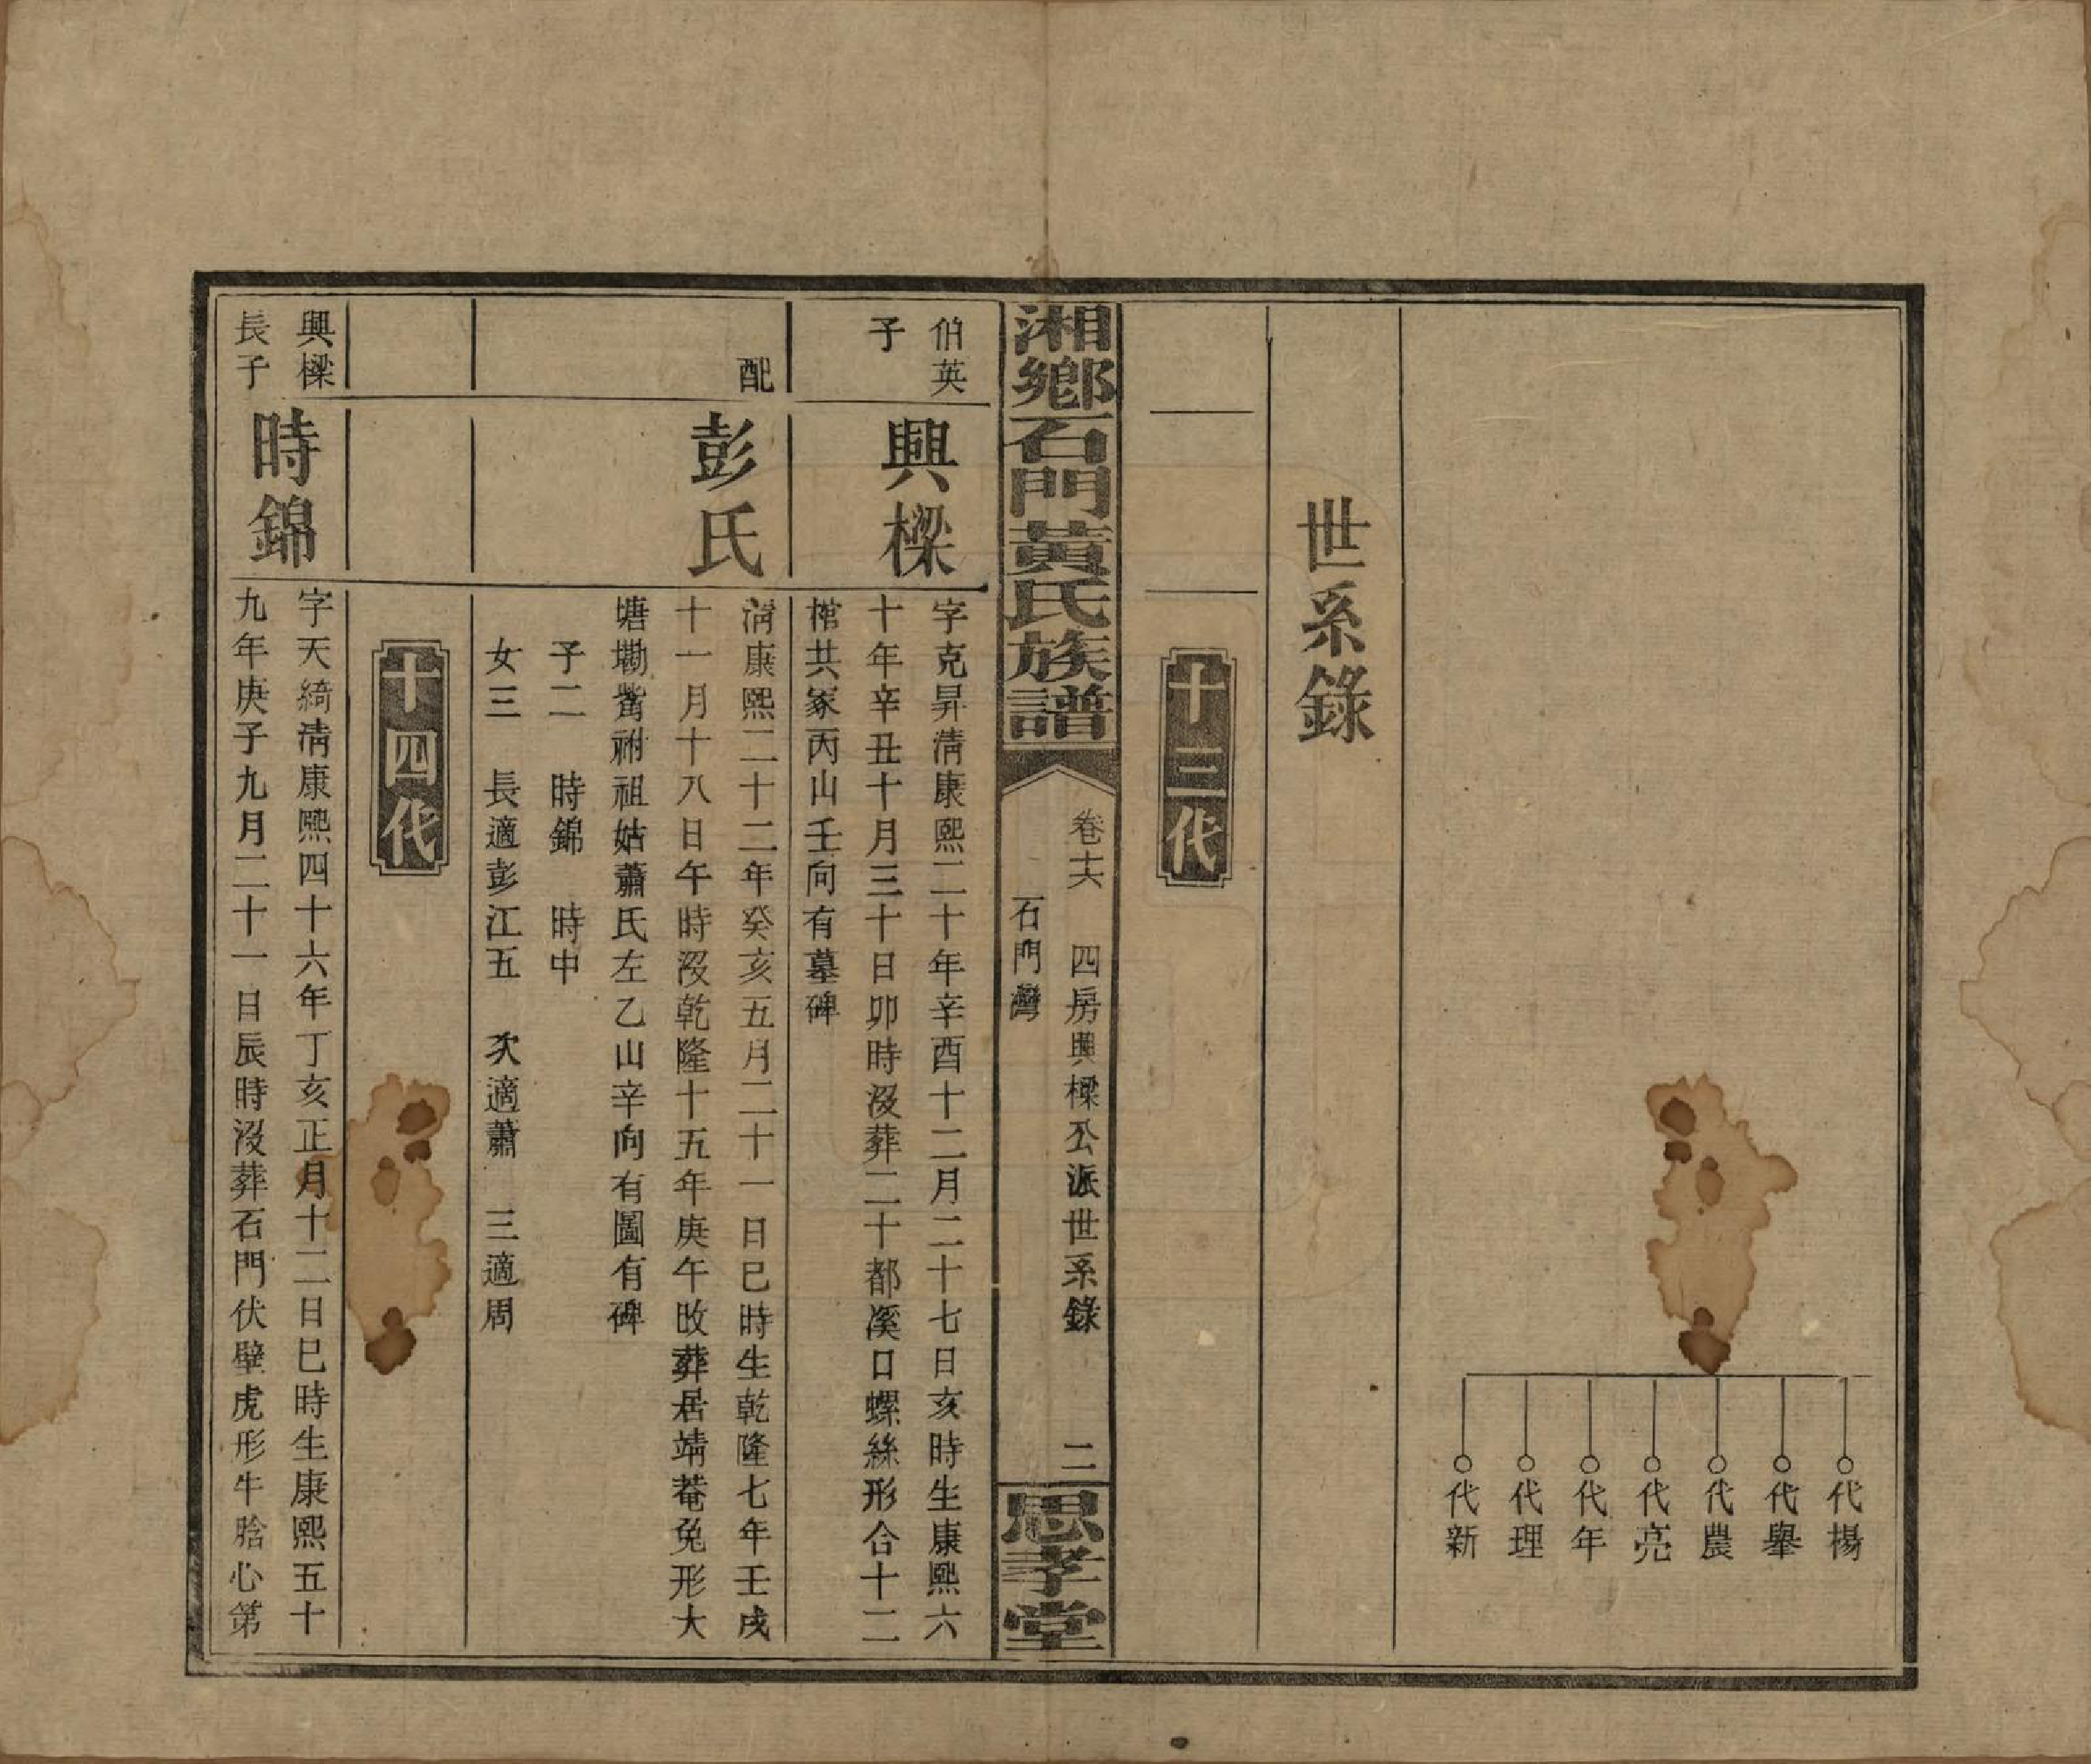 代楊
代舉
代農
代亮
代年
代理
代新
世系錄
十三代
湘鄉石門黃氏族譜
卷十六 四房興樑公派世系錄 二
石門灣
思孝堂
伯英
子
興樑
字克昇清康熙二十年辛酉十二月二十七日亥時生康熙六
十年辛丑十月三十日卯時沒葬二十都溪口螺絲形合十二
棺共冢丙山壬向有墓碑
配
彭氏
清康熙二十二年癸亥五月二十一日巳時生乾隆七年壬戌
十一月十八日午時沒乾隆十五年庚午改葬居靖菴兔形大
塘墈嘴祔祖姑蕭氏左乙山辛向有圖有碑
子二 時錦 時中
女三 長適彭江五 次適蕭 三適周
十四代
興樑
長子
時錦
字天綺清康熙四十六年丁亥正月十二日巳時生康熙五十
九年庚子九月二十一日辰時沒葬石門伏壁虎形牛脍心第